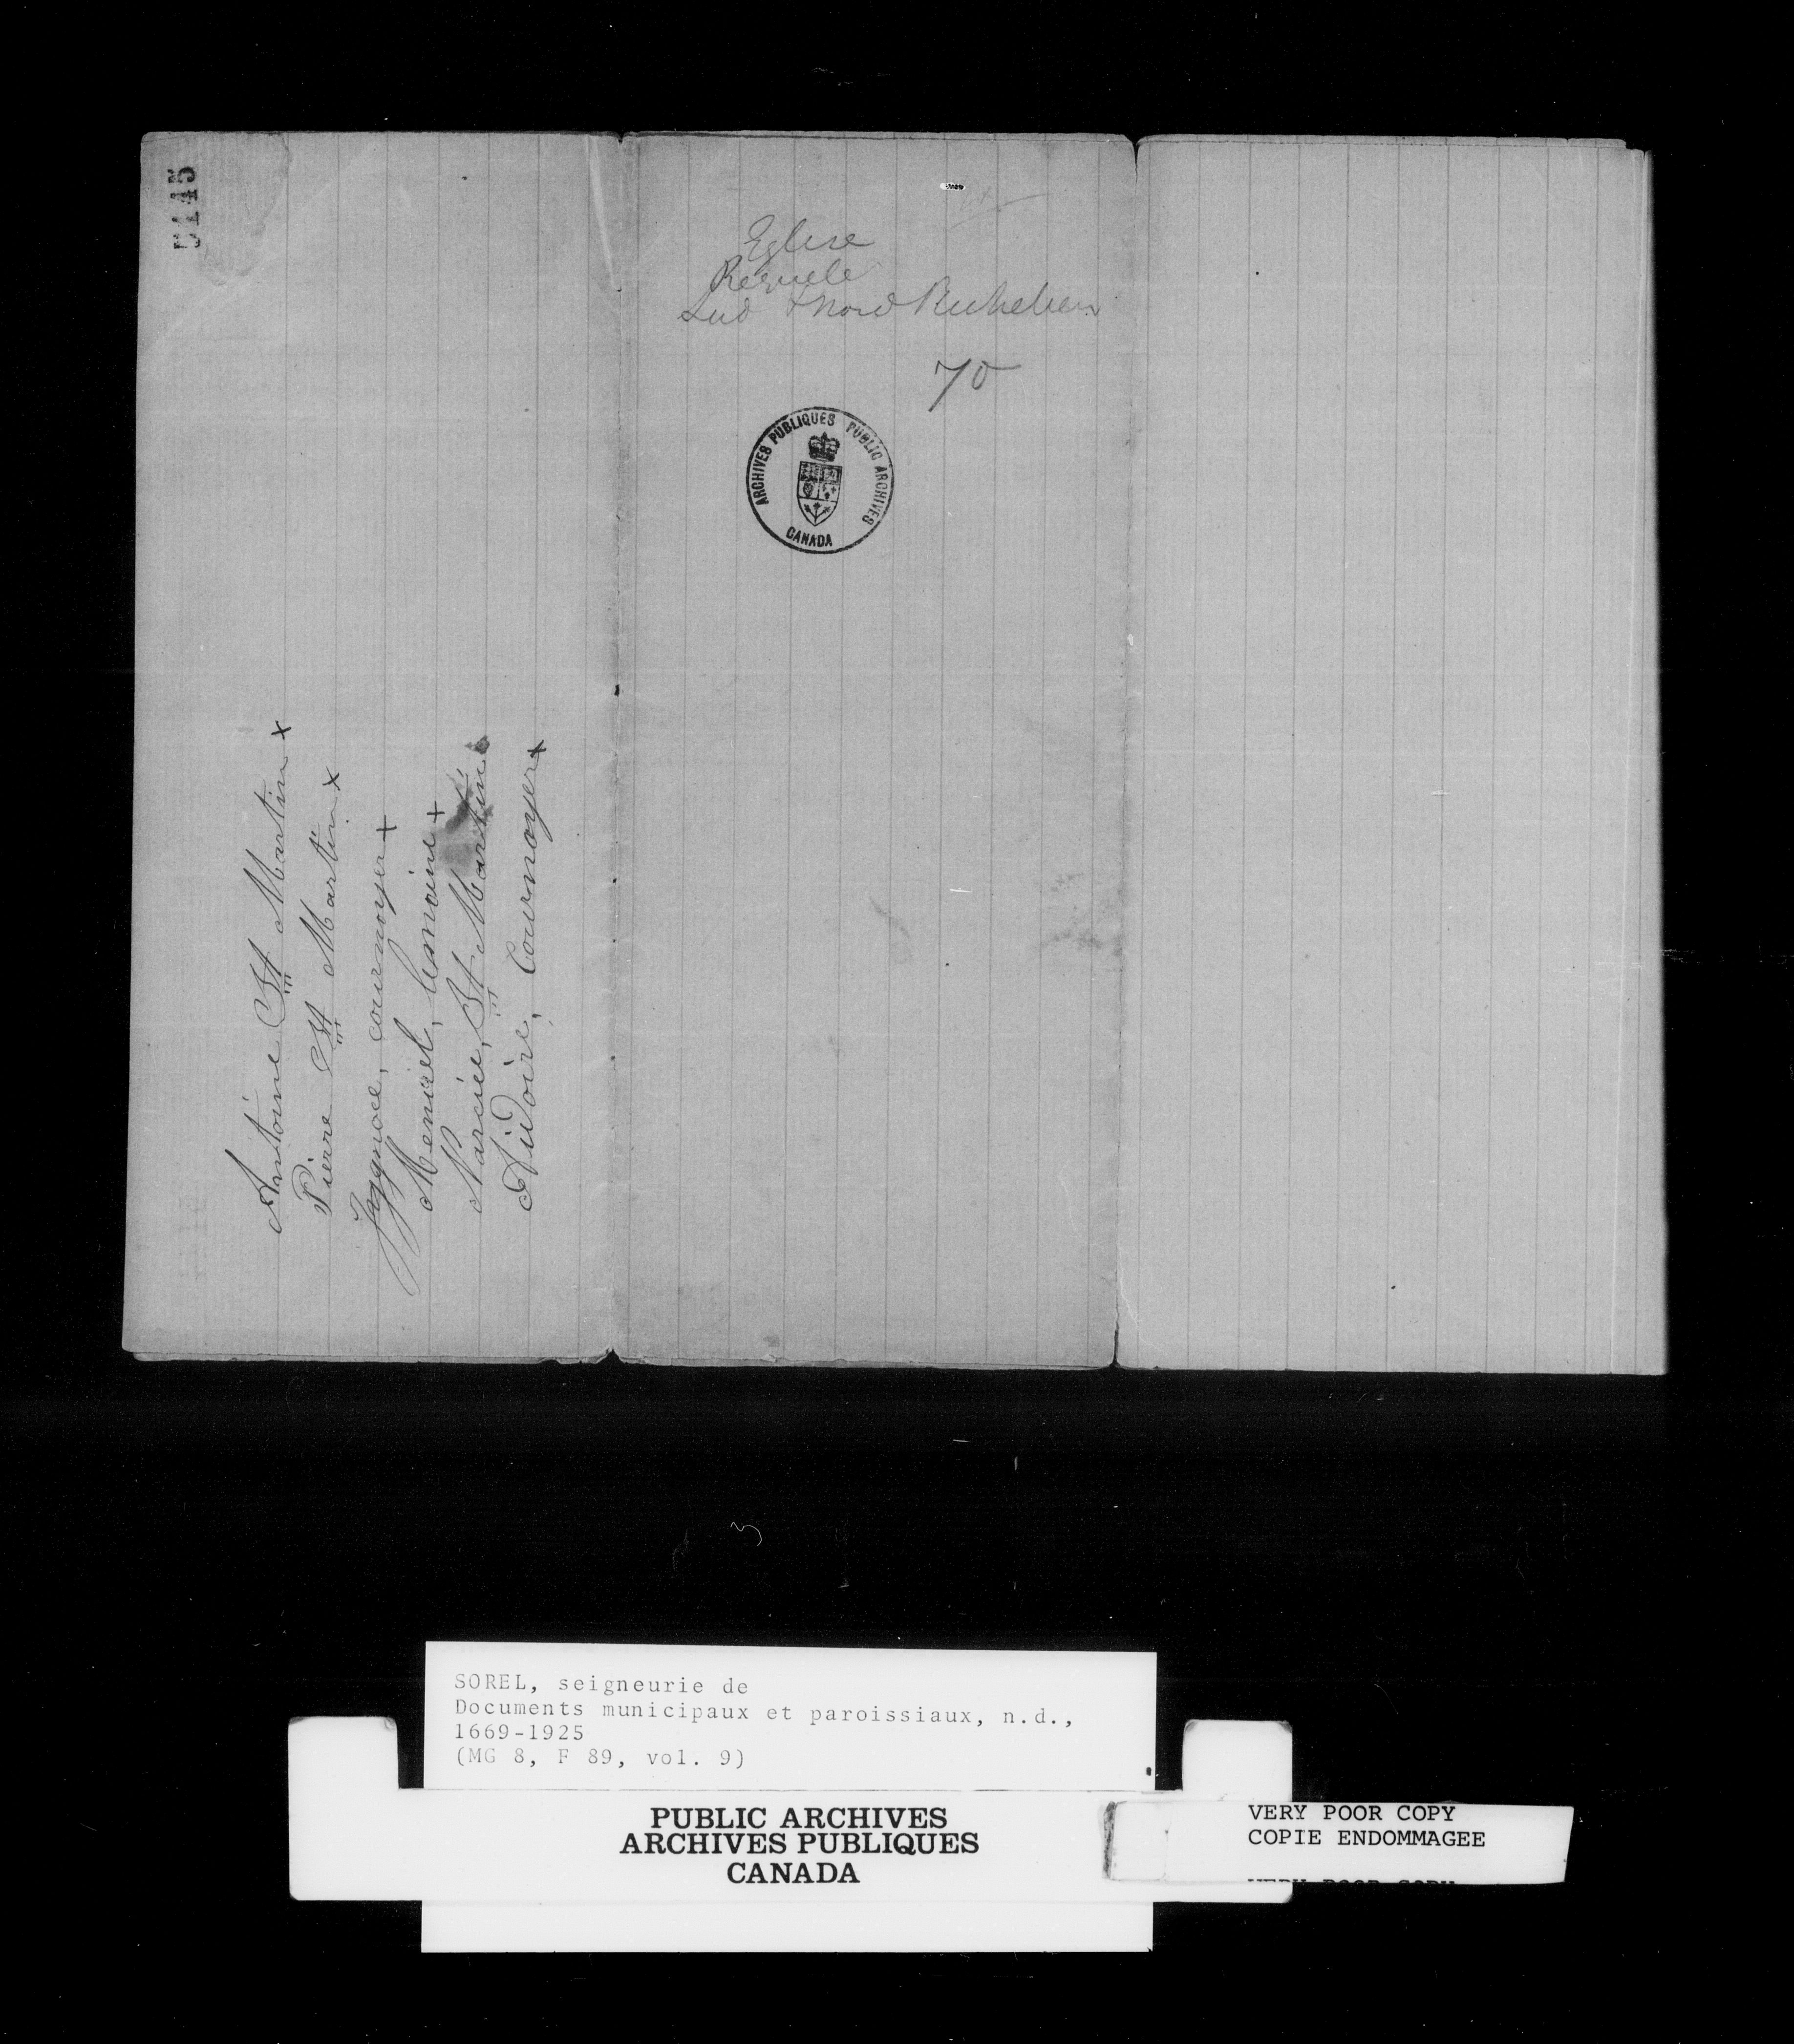 5145
Antoine St Martin x
Pierre St Martin x
Jggnace, cournoyer +
Lemoine +
Narcise, St Martin
Cournoyer +
Eglise
Requete
Sud & Nord Richelieu
70
ARCHIVES PUBLIQUES PUBLIC ARCHIVES
CANADA
SOREL, seigneurie de
Documents municipaux et paroissiaux, n.d.,
1669-1925
(MG 8, F 89, vol. 9)
PUBLIC ARCHIVES
ARCHIVES PUBLIQUES
CANADA
VERY POOR COPY
COPIE ENDOMMAGEE
VERY POOR COPY